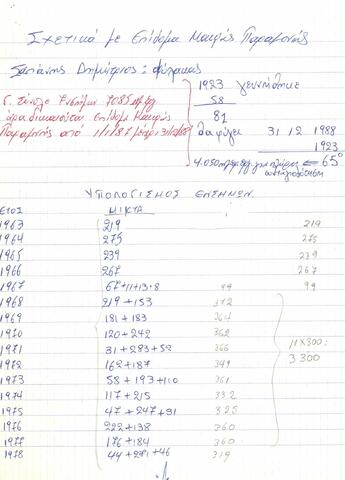 Σχετικά με Επίδομα Μακράς Παραμονής
Δημήτριος: φύλακας
1923 γεννήθηκε
58
81
Σύνολο Ενσήμων 7085
άρα δικαιούται Επίδομα Μακράς
Παραμονής από 1/1/87 μέχρι 31/12/88
θα φύγει 31 12 1988
1923
4.050 για πλήρη ⇐ 65°
συνταξιοδότηση
ΥΠΟΛΟΓΙΣΜΟΣ ΕΝΣΗΜΩΝ.
ΕΤΟΣ ΜΙΚΤΑ
1963 219 219
1964 275 275
1965 239 239
1966 267 267
1967 67+11+13+8 99 99
1968 219+153 372
1969 181+183 364
1970 120+242 362
1971 31+283+52 366 11x300:
1972 162+187 349 3300
1973 58+193+110 361
1974 117+215 332
1975 47+247+31 325
1976 222+138 360
1977 176+184 360
1978 44+229+46 319